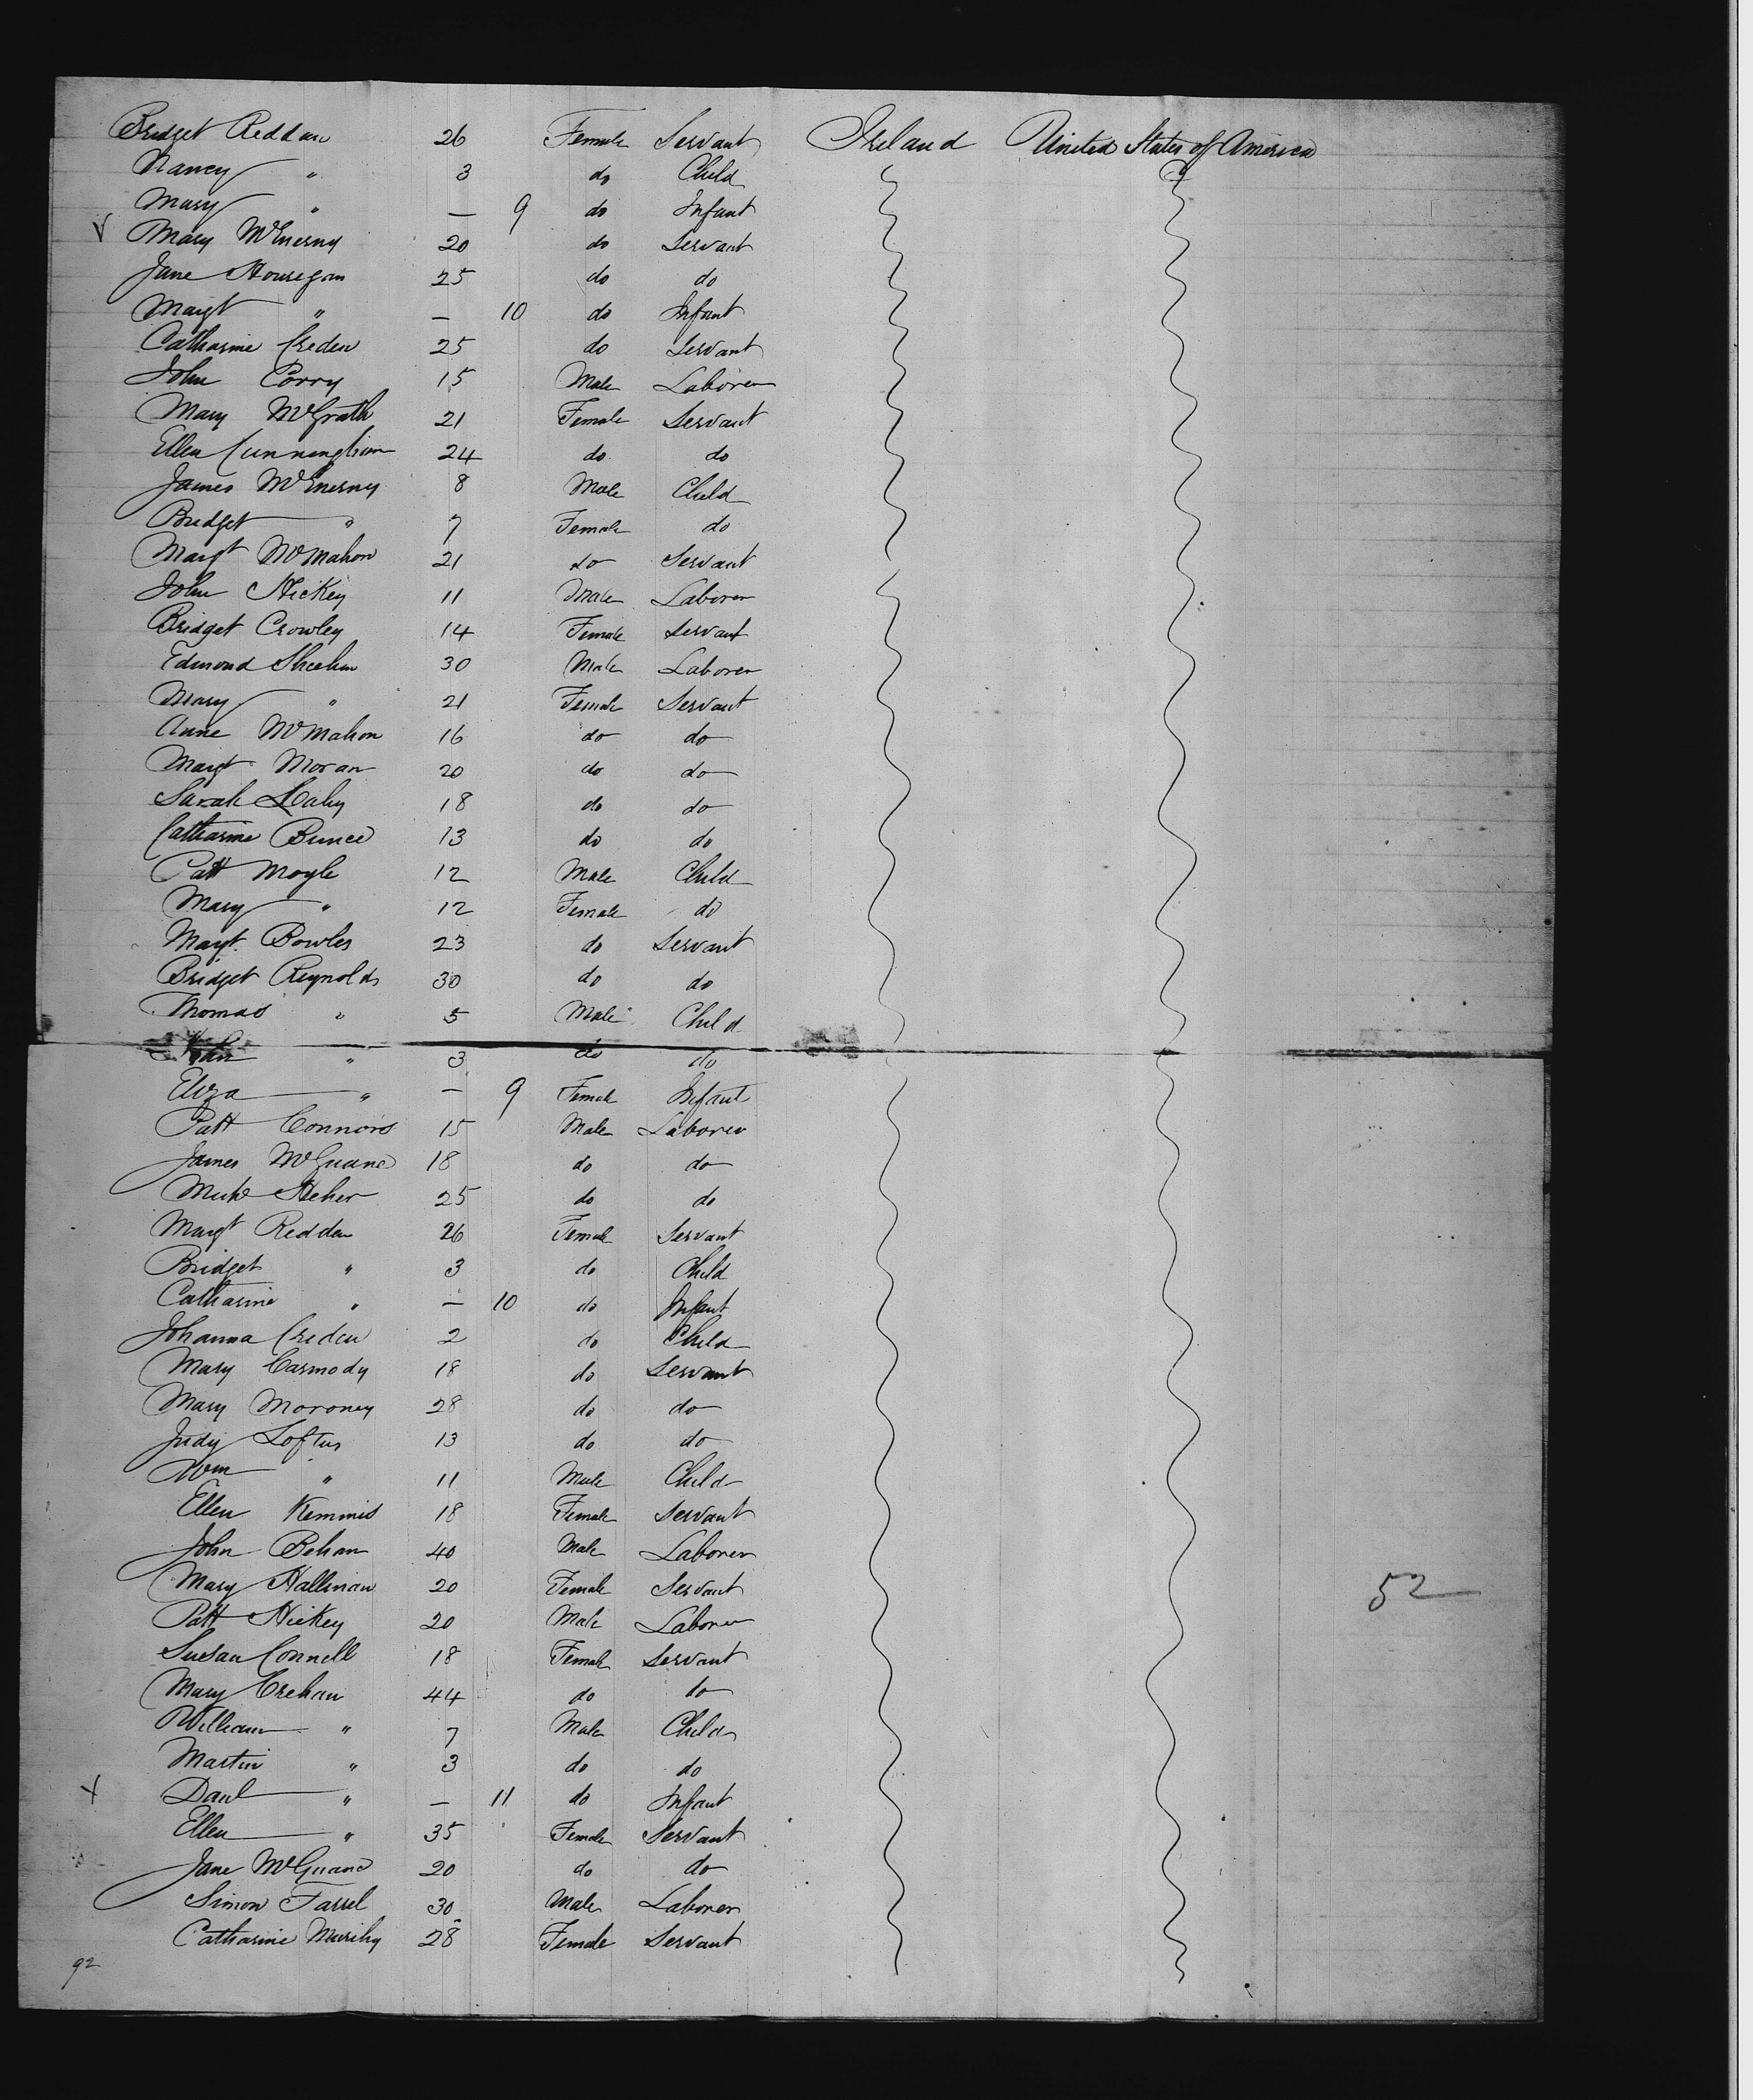 Bridget Reddan 26 Female Servant Ireland United States of America
Nancy " 3 do Child
Mary " — 9 do Infant
V Mary McEnerny 20 do Servant
Jane Hourigan 25 do do
Margt " — 10 do Infant
Catharine Creden 25 do Servant
John Corry 15 Male Laborer
Mary McGrath 21 Female Servant
Ellen Cunningham 24 do do
James McEnerny 8 Male Child
Bridget " 7 Female do
Margt McMahon 21 do Servant
John Hickey 11 Male Laborer
Bridget Crowley 14 Female Servant
Edmond Sheehan 30 Male Laborer
Mary " 21 Female Servant
Anne McMahon 16 do do
Margt Moran 20 do do
Sarah 18 do do
Catharine Bunce 13 do do
Patt Moyle 12 Male Child
Mary " 12 Female do
Margt. Bowles 23 do Servant
Bridget Reynolds 30 do do
Thomas " 5 Male Child
John " 3 do do
Eliza " — 9 Female Infant
Patt Connors 15 Male Laborer
James McGuane 18 do do
Michl Heher 25 do do
Margt Redden 26 Female Servant
Bridget " 3 do Child
Catharine " — 10 do Infant
Johanna Creden 2 do Child
Mary Carmody 18 do Servant
Mary Moroney 28 do do
Judy Loftus 13 do do
Wm " 11 Male Child
Ellen Kemmis 18 Female Servant
John Behan 40 Male Laborer
Mary Hallinan 20 Female Servant
52
Patt Hickey 20 Male Laborer
Susan Connell 18 Female Servant
Mary Crehan 44 do do
William " 7 Male Child
Martin " 3 do do
X Danl " — 11 do Infant
Ellen " 35 Female Servant
Jane McGuane 20 do do
Simon Farrel 30 Male Laborer
Catharine 28 Female Servant
92